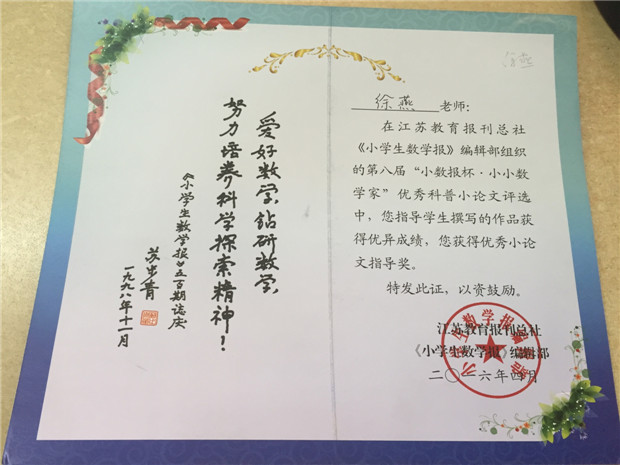 爱好数学,钻研数学,
努力培养科学探索精神!
《小学生数学报》五百期志庆
苏步青
一九九八年十一月
徐燕
徐燕 老师:
在江苏教育报刊总社
《小学生数学报》编辑部组织
的第八届“小数报杯·小小数
学家”优秀科普小论文评选
中,您指导学生撰写的作品获
得优异成绩,您获得优秀小论
文指导奖。
特发此证,以资鼓励。
江苏教育报刊总社
《小学生数学报》编辑部
二〇一六年四月
小学生数学报编辑部